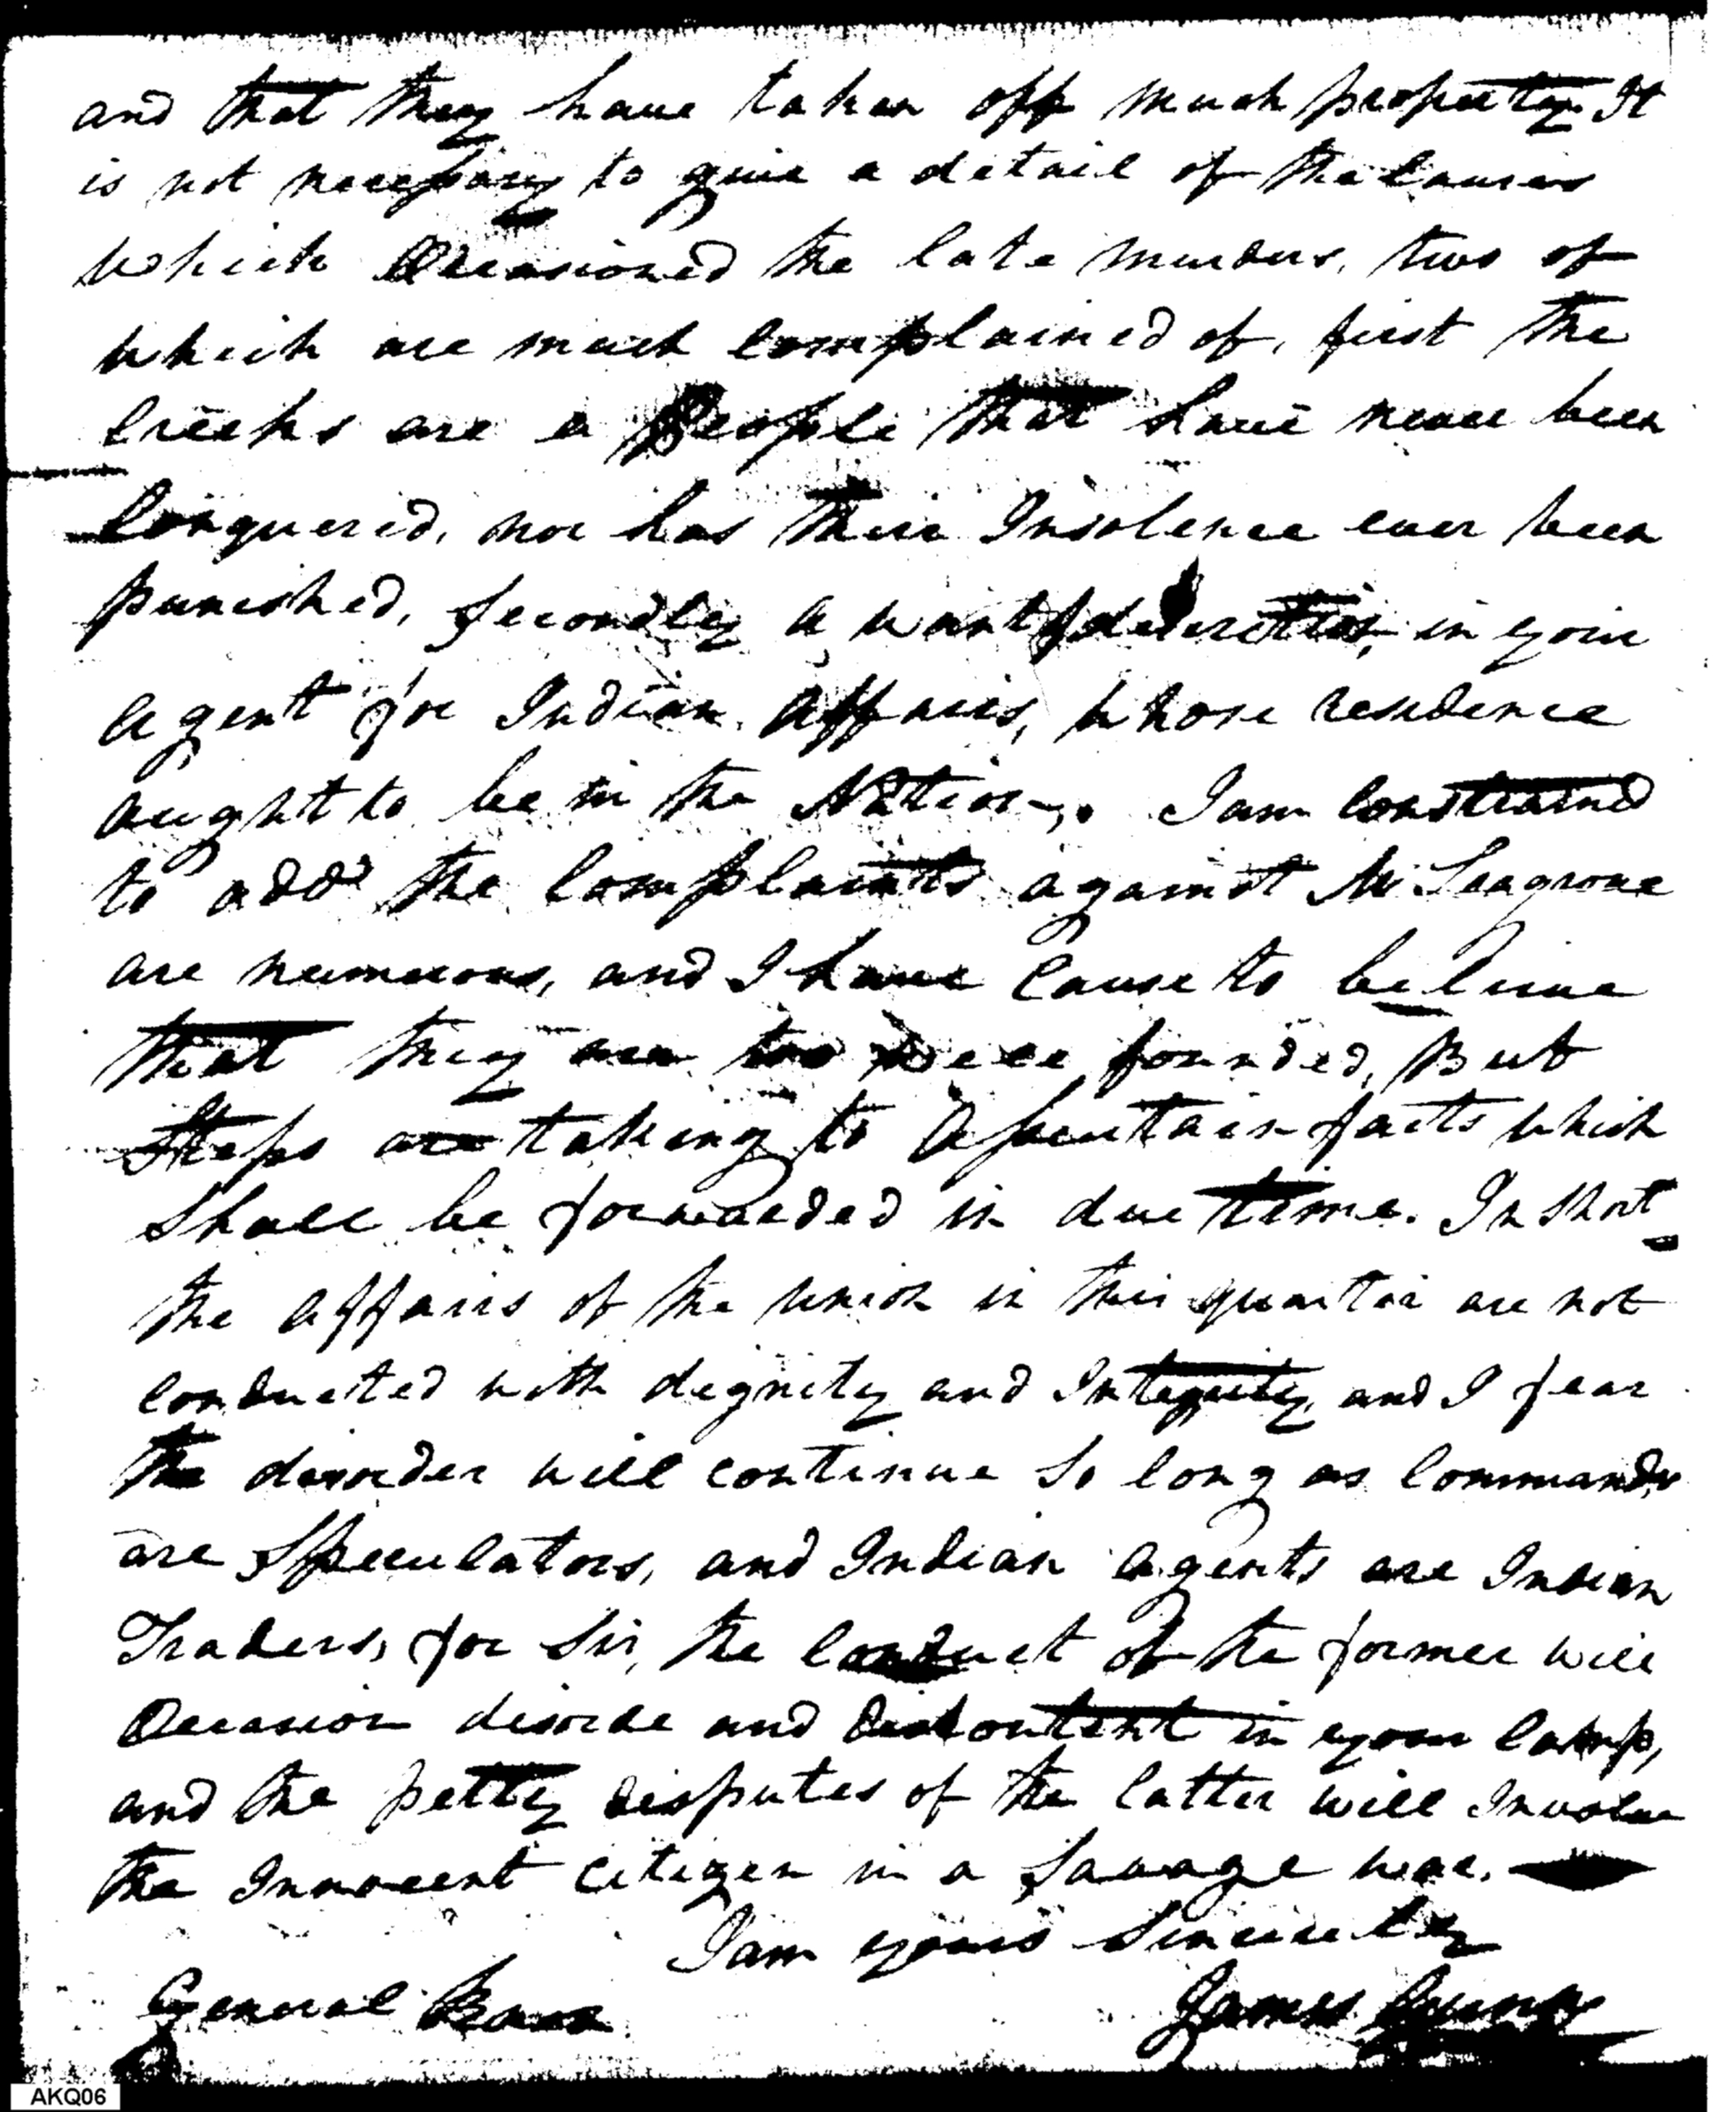 and that they have taken off much property It
is not necessary to give a detail of the Causes
which Occasioned the late murders, two of
which are much Complained of, first the
Creeks are a People that have never been
Conquered, nor has their Insolence ever been
punished, Secondly a want of discretion, in your
agent for Indian Affairs, whose residence
aught to be in the Nation. I am Constrained
to add the Complaints against Mr Seagrove
are numerous, and I have Cause to believe
that they are too well founded, But
Steps are taking to Assertain facts which
shall be forwarded in due time. In Short
the affairs of the union in this quarter are not
Conducted with dignity and Integrity, and I fear
the disorder will continue So long as Commandrs
are Speculators, and Indian Agents are Indian
Traders, for Sir, the Conduct of the former will
Occasion disorde and discontent in your Camp,
and the petty disputes of the latter will Involve
the Innocent Citizen in a Savage war.
I am yours Sincerely
General James
AKQ06